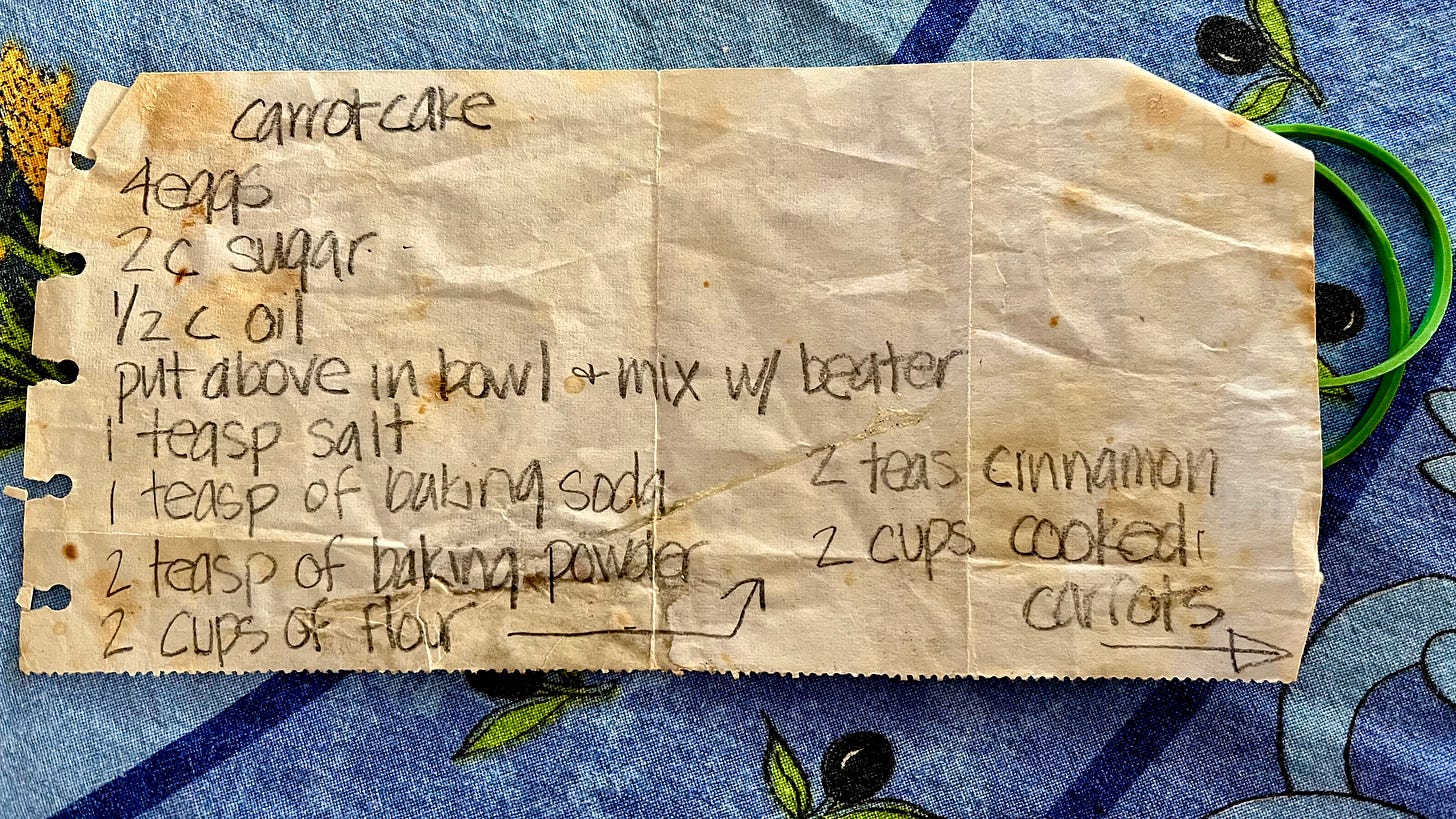 carrot cake
4 eggs
2 c sugar
1/2 c oil
put above in bowl + mix w/ beater
1 teasp salt
1 teasp of baking soda
2 teasp of baking powder
2 cups of flour
2 teas cinnamon
2 cups cooked
carrots